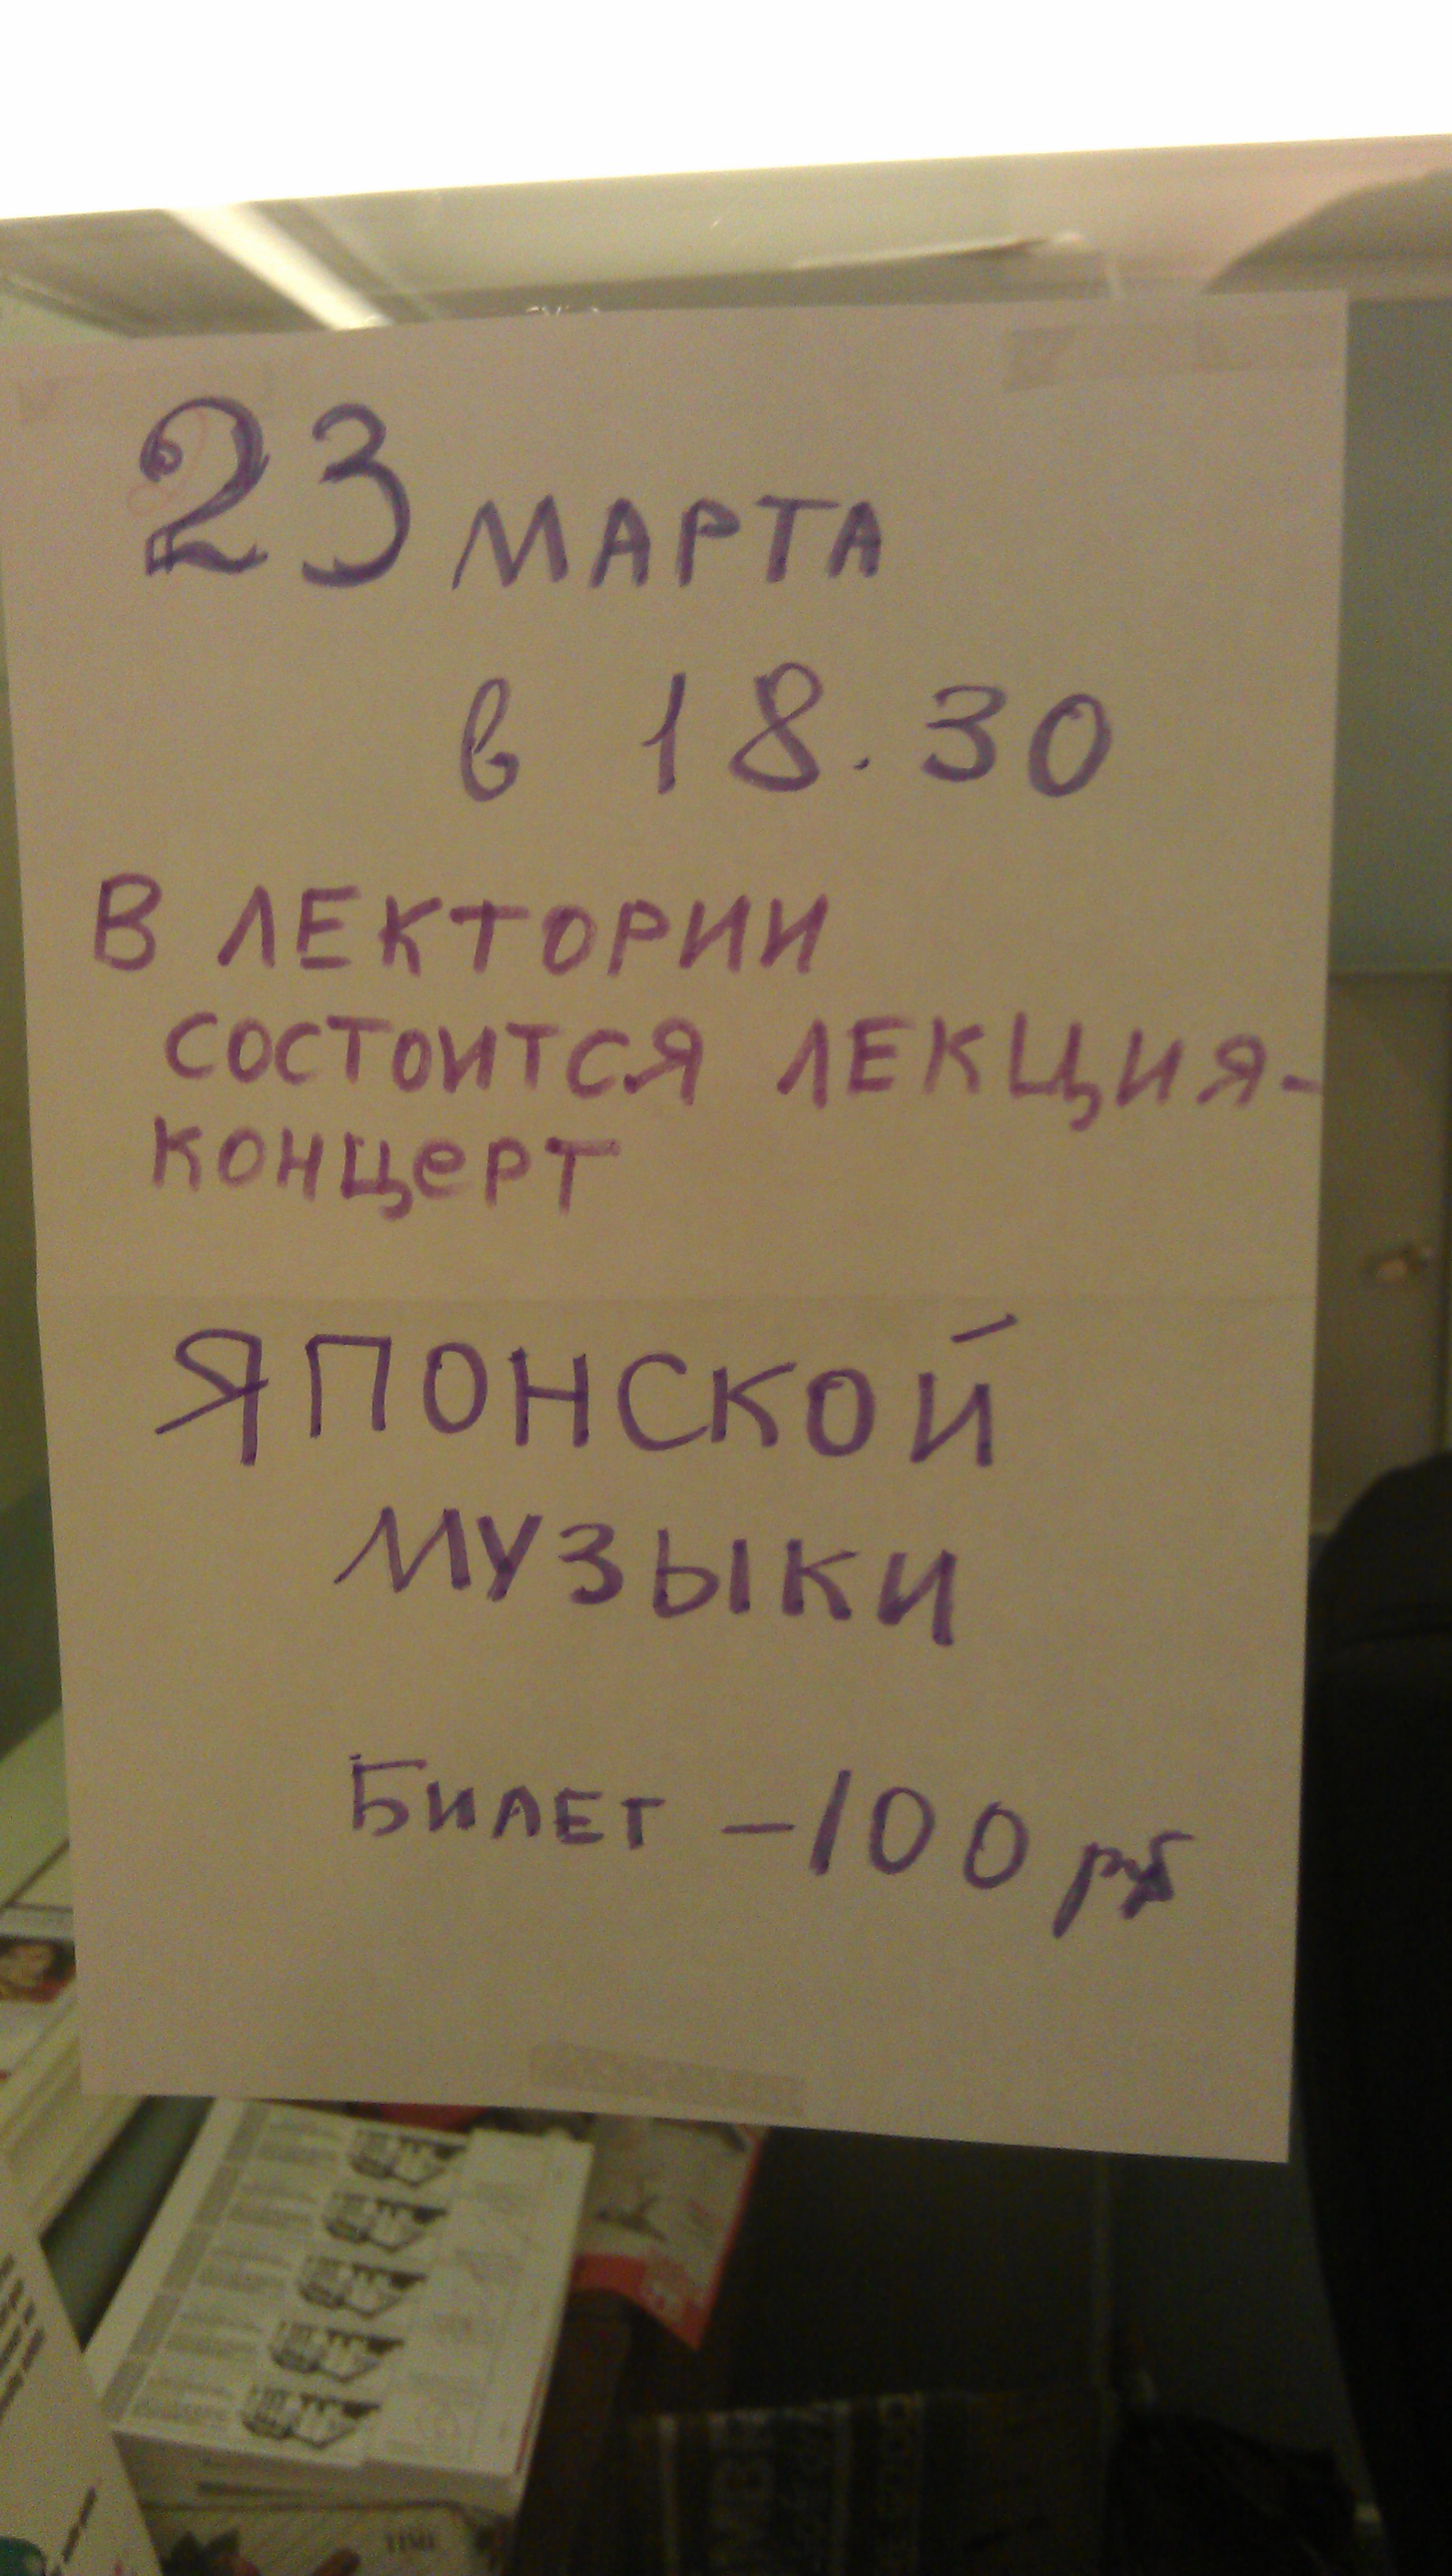 23 МАРТА
в 18.30
В ЛЕКТОРИИ
СОСТОИТСЯ ЛЕКЦИЯ-
КОНЦЕРТ
ЯПОНСКОЙ
МУЗЫКИ
БИЛЕТ - 100 рб